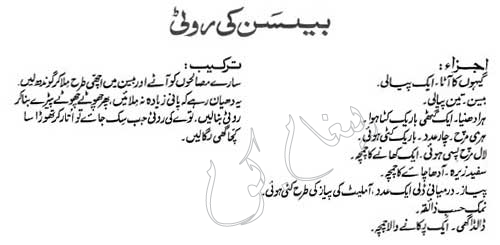 بیسن کی روٹی
اجزاء:
گیہوں کا آٹا۔ ایک پیالی۔
بیسن۔ تین پیالی۔
ہرا دھنیا۔ ایک گٹھی باریک کٹا ہوا۔
ہری مرچ۔ چار عدد۔ باریک کٹی ہوئی۔
لال مرچ پسی ہوئی۔ ایک کھانے کا چمچہ۔
سفید زیرہ۔ آدھا چائے کا چمچہ۔
پیاز۔ درمیانی ڈلی ایک عدد، آملیٹ کی پیاز کی طرح کٹی ہوئی۔
نمک حسب ذائقہ۔
ڈالڈا گھی۔ ایک پکانے والا چمچہ۔
ترکیب:
سارے مصالحوں کو آٹے اور بیسن میں اچھی طرح ملا کر گوندھ لیں۔
یہ دھیان رہے کہ پانی زیادہ نہ ملائیں، پھر چھوٹے چھوٹے پیڑے بنا کر
روٹی بنالیں۔ توے کی روٹی جب سک جائے تو اتار کر تھوڑا سا
کچا گھی لگالیں۔